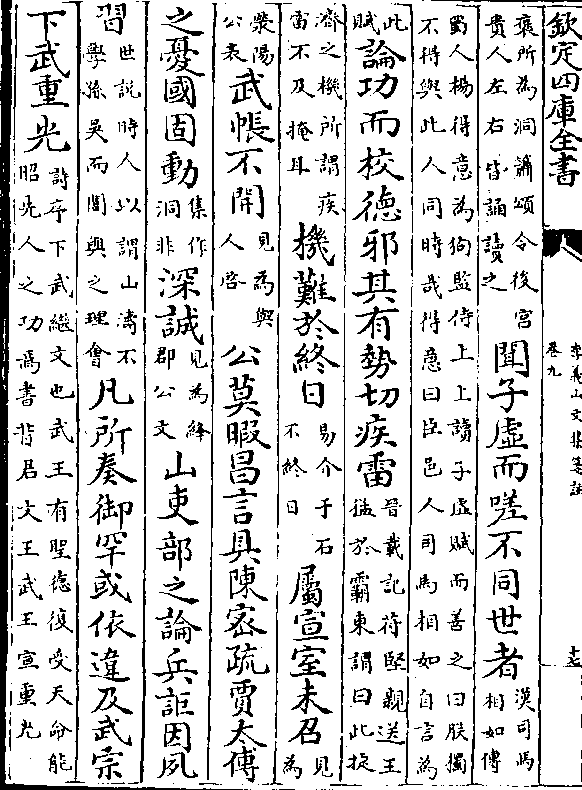 欽定四庫全書
李義山文集箋註
卷九
十七
褒所為洞簫頌令後宮
貴人左右皆誦讀之
聞子虛而嗟不同世者
漢司馬
相如傳
蜀人楊得意為狗監侍上上讀子虛賦而善之曰朕獨
不得與此人同時哉得意曰臣邑人司馬相如自言為
此
賦
論功而校德邪其有勢切疾雷
晉載記苻堅親送王
猛於霸東謂曰此捷
濟之機所謂疾
雷不及掩耳
機難於終日
易介于石
不終日
屬宣室未召
見
為
滎陽
公表
武帳不開
見為與
人啓
公莫暇昌言具陳密疏賈太傅
之憂國固動
集作
洞非
深誠
見為絳
郡公文
山吏部之論兵詎因夙
習
世說時人以謂山濤不
學孫吳而闇與之理會
凡所奏御罕或依違及武宗
下武重光
詩序下武繼文也武王有聖德復受天命能
昭先人之功焉書昔君文王武王宣重光